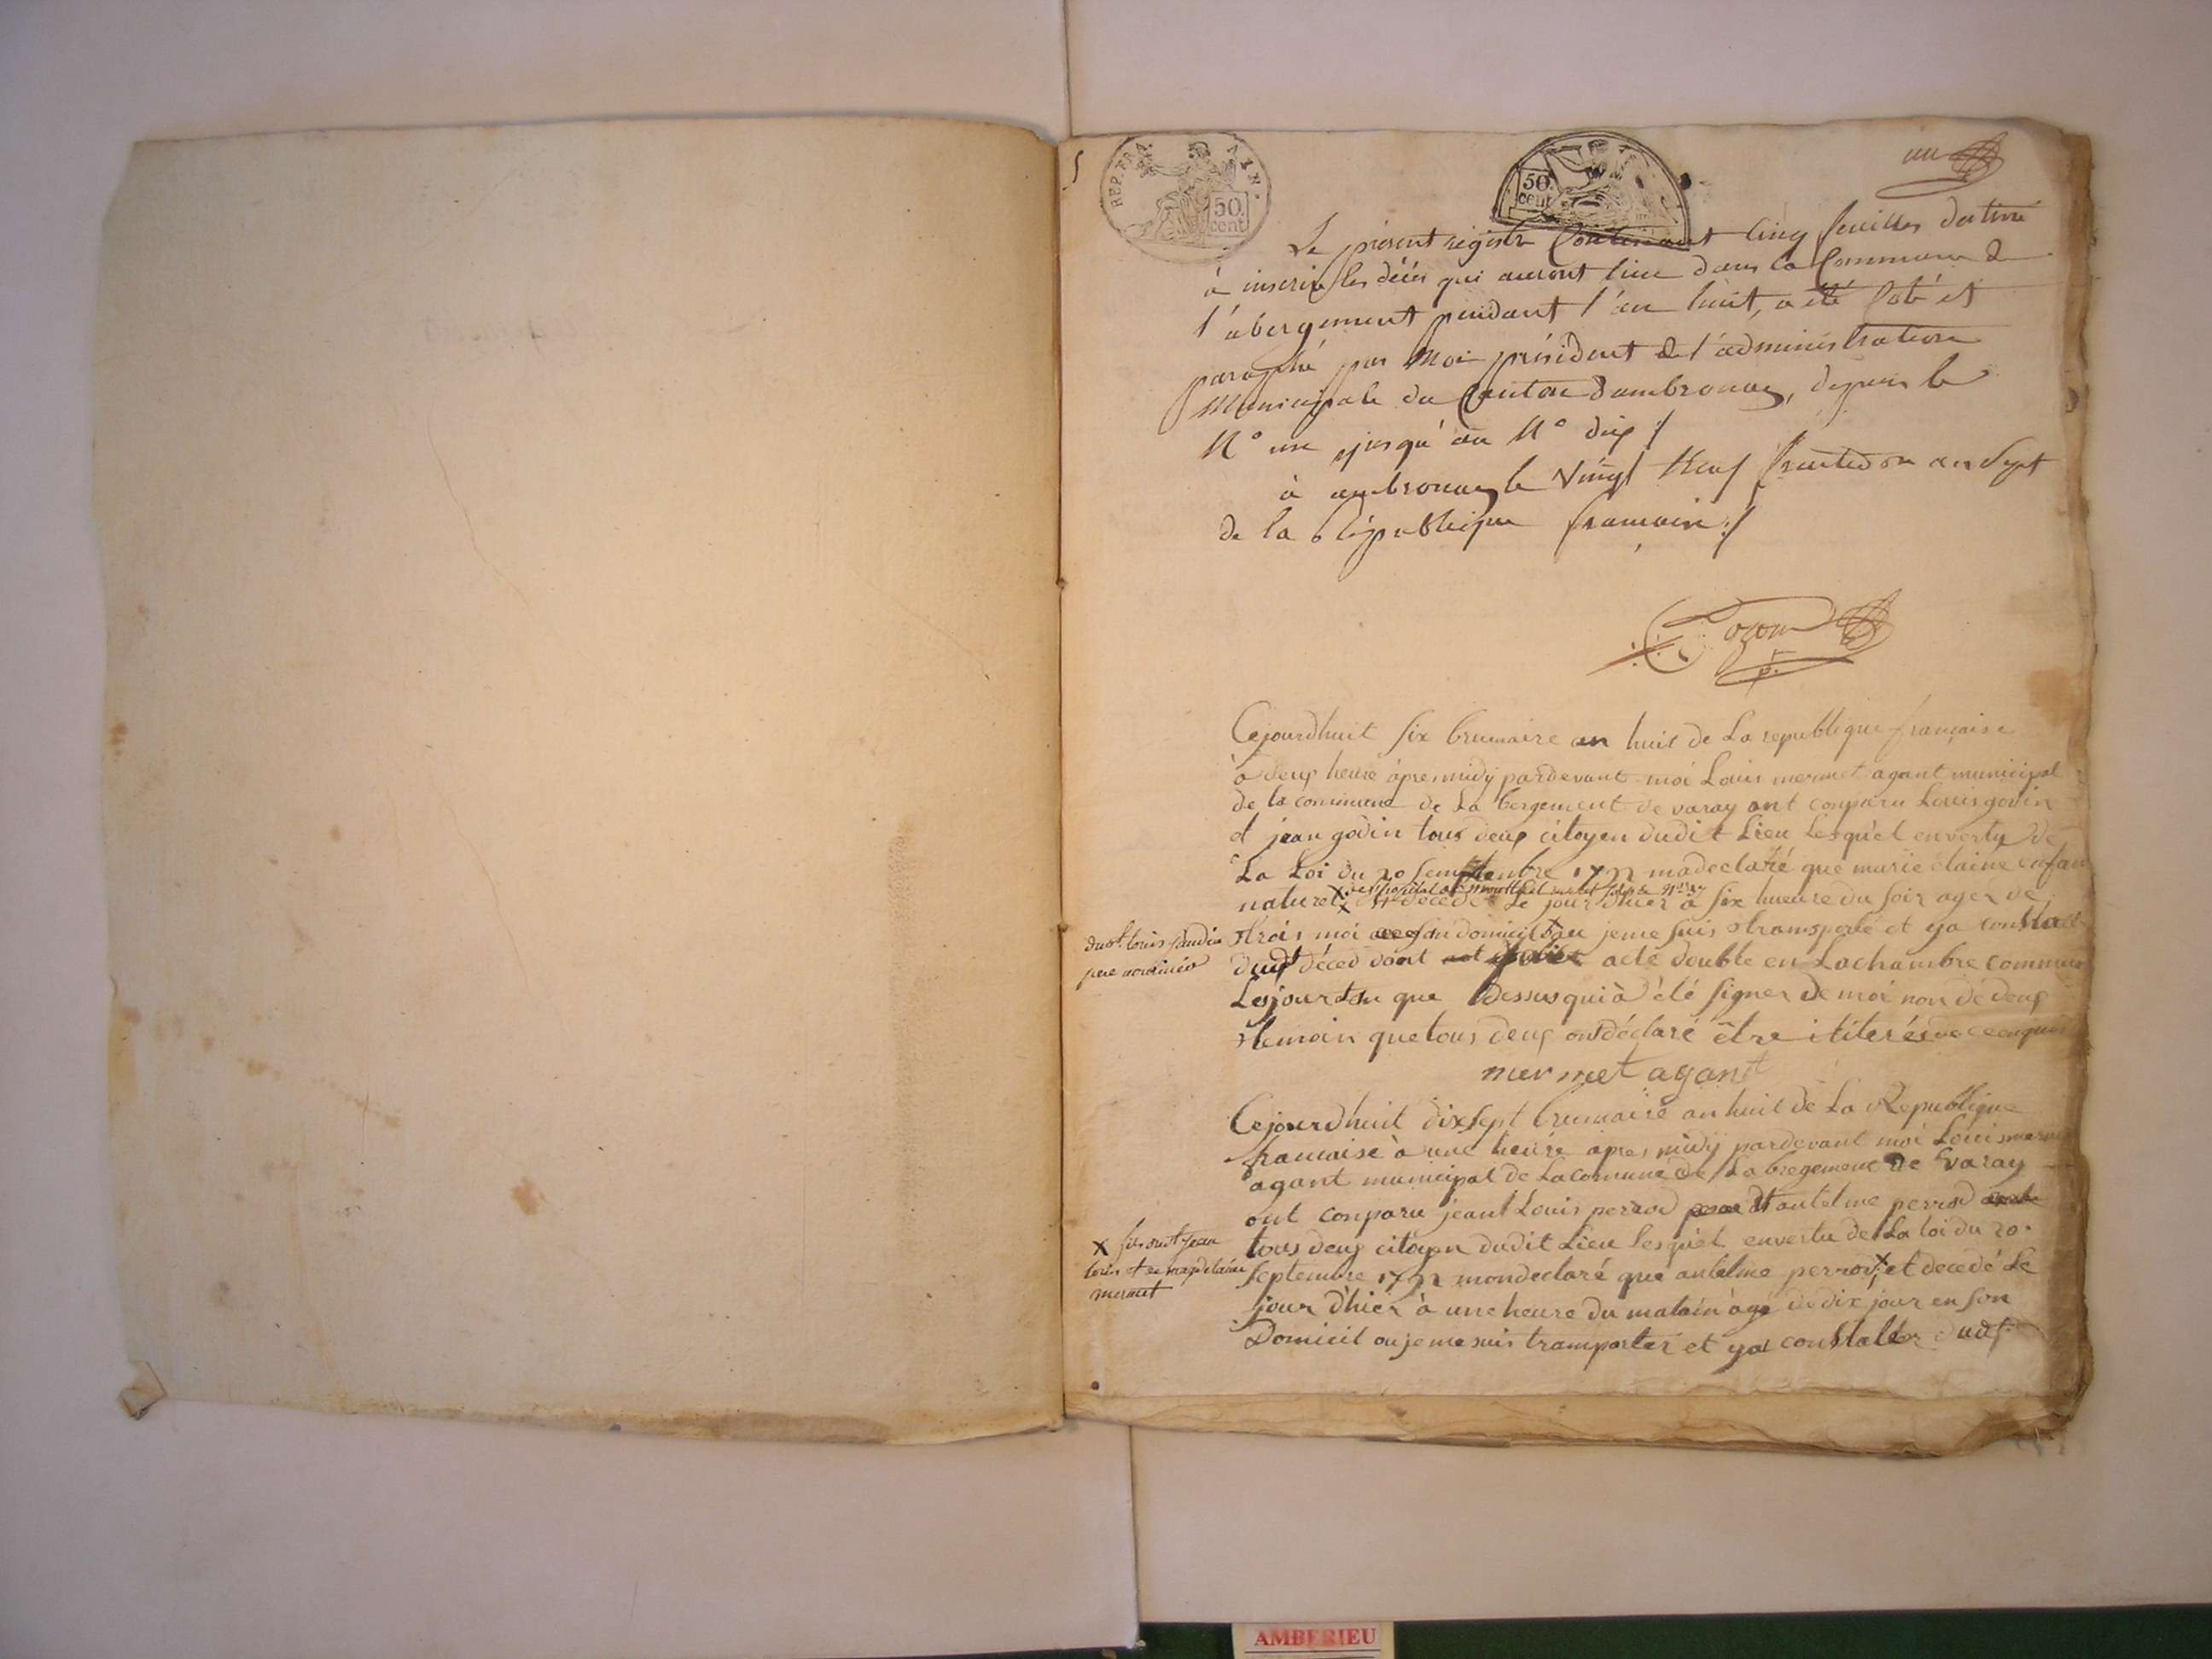 REP. FRA.
50
cent
50.
cent
un
Le present registre Contenant Cinq feuilles destiné
à inscrire les décès qui auront lieu dans la Commune de
l'abergement pendant l'an huit, a été Coté et
paraphé par Moi président de l'administration
Municipale du Canton d'ambronay, depuis le
N° un jusqu'au N° dix ./
à ambronay le Vingt Neuf fructidor an Sept
de la République francaise ./
Cejourdhuit six brumaire an huit de La republique française
à deux heure àpres midÿ pardevant moi Louis mermet agant municipal
de la commune de La bergement de varay ont conparu Louis godin
et jean godin tous deux citoyen dudit Lieu Lesquel en vertu de
La Loi du 20 semptembre 1792 ma declaré que marie claine enfan
de l'hopital
naturel X et décedé Le jour d'hier à six hueure du soir ager de
trois moi son domicil ou jeme suis stransporté et ya constalt
dudt déced dont acte double en Lachambre commune
Les jour et an que Dessus qui à été signer de moi non de deux
temoin que tous deux on déclaré être ititerés de ce enquis
mermet agant
dudt. louis gaudin
père nouricier
Cejourdhuit dix sept brumaire an huit de La Republique
francaise à une heure apres midÿ pardevant moi Louis mermet
agant municipal de La comune de La bregement De varay
ont conparu jean Louis perrod et antelme perrod
tous deux citoyen dudit Lieu lesquel en vertu de La loi du 20.
septembre 1792 mon declaré que antelme perrod X et decedé Le
jour d'hier à une heure du matain agé de dix jour en son
Domicil ou je me suis tramporter et ya constalter dudt.
X fils dudt jean
louis et de magdelaine
mermet
AMBERIEU